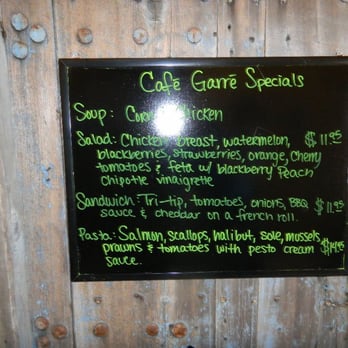 Café Garré Specials
Soup: Chicken
Salad: Chicken breast, watermelon, $11.95
blackberries, strawberries, orange, cherry
tomatoes & feta w/ blackberry peach
chipotle vinaigrette
Sandwich: Tri-tip, tomatoes, onions, BBQ
sauce & cheddar on a french roll. $11.95
Pasta: Salmon, scallops, halibut, sole, mussels,
prawns & tomatoes with pesto cream
sauce.